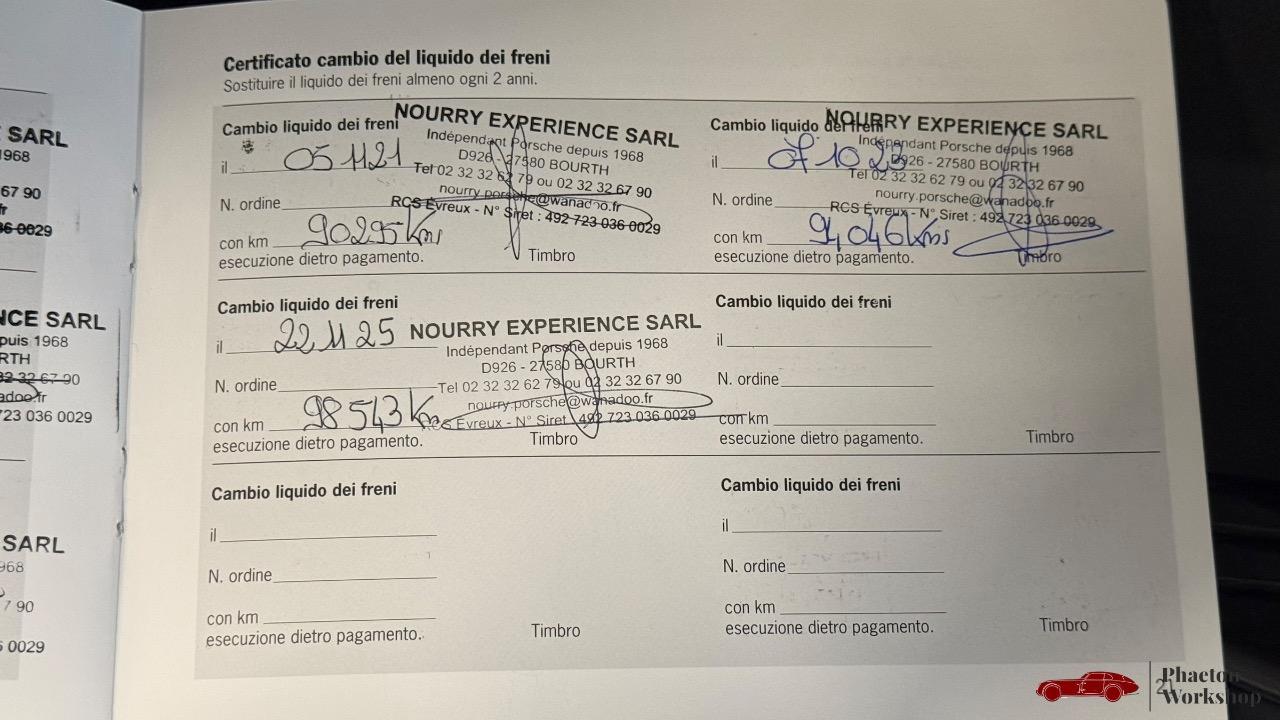 Certificato cambio del liquido dei freni
Sostituire il liquido dei freni almeno ogni 2 anni.
Cambio liquido dei freni
il 05 11 21
N. ordine
con km 90295 Kms
esecuzione dietro pagamento.
Timbro
NOURRY EXPERIENCE SARL
Indépendant Porsche depuis 1968
D926 - 27580 BOURTH
Tel 02 32 32 62 79 ou 02 32 32 67 90
nourry.porsche@wanadoo.fr
RCS Évreux - N° Siret : 492 723 036 0029
Cambio liquido dei freni
il 07 10 23
N. ordine
con km 94,046 Kms
esecuzione dietro pagamento.
Timbro
NOURRY EXPERIENCE SARL
Indépendant Porsche depuis 1968
D926 - 27580 BOURTH
Tel 02 32 32 62 79 ou 02 32 32 67 90
nourry.porsche@wanadoo.fr
RCS Évreux - N° Siret : 492 723 036 0029
Cambio liquido dei freni
il 22 11 25
N. ordine
con km 98543 Kms
esecuzione dietro pagamento.
Timbro
NOURRY EXPERIENCE SARL
Indépendant Porsche depuis 1968
D926 - 27580 BOURTH
Tel 02 32 32 62 79 ou 02 32 32 67 90
nourry.porsche@wanadoo.fr
RCS Évreux - N° Siret : 492 723 036 0029
Cambio liquido dei freni
il
N. ordine
con km
esecuzione dietro pagamento.
Timbro
Cambio liquido dei freni
il
N. ordine
con km
esecuzione dietro pagamento.
Timbro
Cambio liquido dei freni
il
N. ordine
con km
esecuzione dietro pagamento.
Timbro
SARL
1968
67 90
fr
36 0029
NCE SARL
puis 1968
RTH
32 32 67 90
adoo.fr
723 036 0029
SARL
968
7 90
6 0029
Phaeton
Workshop